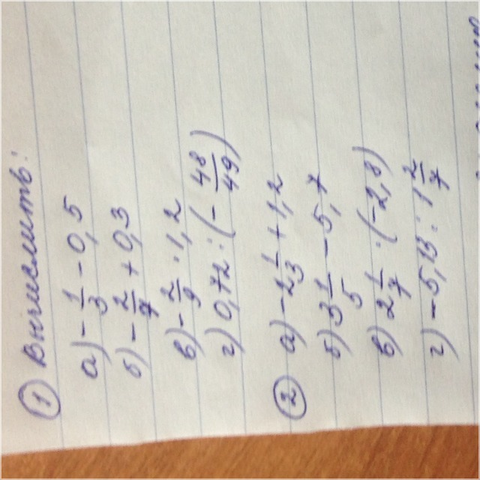 ① Вычислить:
а) -1/3 - 0,5
б) -2/7 + 0,3
в) -2/9 · 1,2
г) 0,72 : (-48/49)
② а) -2 1/3 + 1,2
б) 3 1/5 - 5,7
в) 2 1/7 · (-2,8)
г) -5,13 : 1 2/7